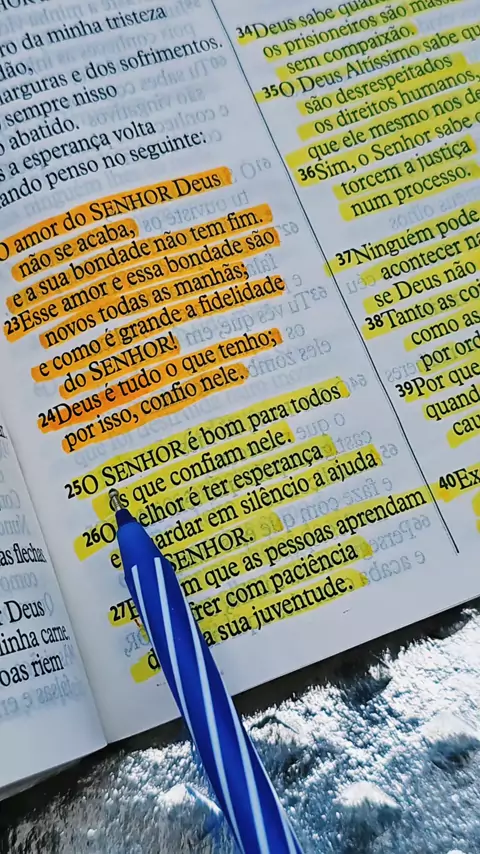 ro da minha tristeza
dão,
marguras e dos sofrimentos.
sempre nisso
abatido.
a esperança volta
ando penso no seguinte:
O amor do SENHOR Deus
não se acaba,
e a sua bondade não tem fim.
23Esse amor e essa bondade são
novos todas as manhãs;
e como é grande a fidelidade
do SENHOR!
24Deus é tudo o que tenho;
por isso, confio nele.
25O SENHOR é bom para todos
os que confiam nele.
26O melhor é ter esperança
e aguardar em silêncio a ajuda
SENHOR.
27 m que as pessoas aprendam
frer com paciência
a sua juventude.
34Deus sabe quan
os prisioneiros são mass
sem compaixão.
35O Deus Altíssimo sabe qu
são desrespeitados
os direitos humanos,
que ele mesmo nos de
36Sim, o Senhor sabe
torcem a justiça
num processo.
37Ninguém pode
acontecer na
se Deus não
38Tanto as coi
como as
por ord
39Por que
quand
cau
40Ex
as flechas
r Deus
inha carne
oas riem